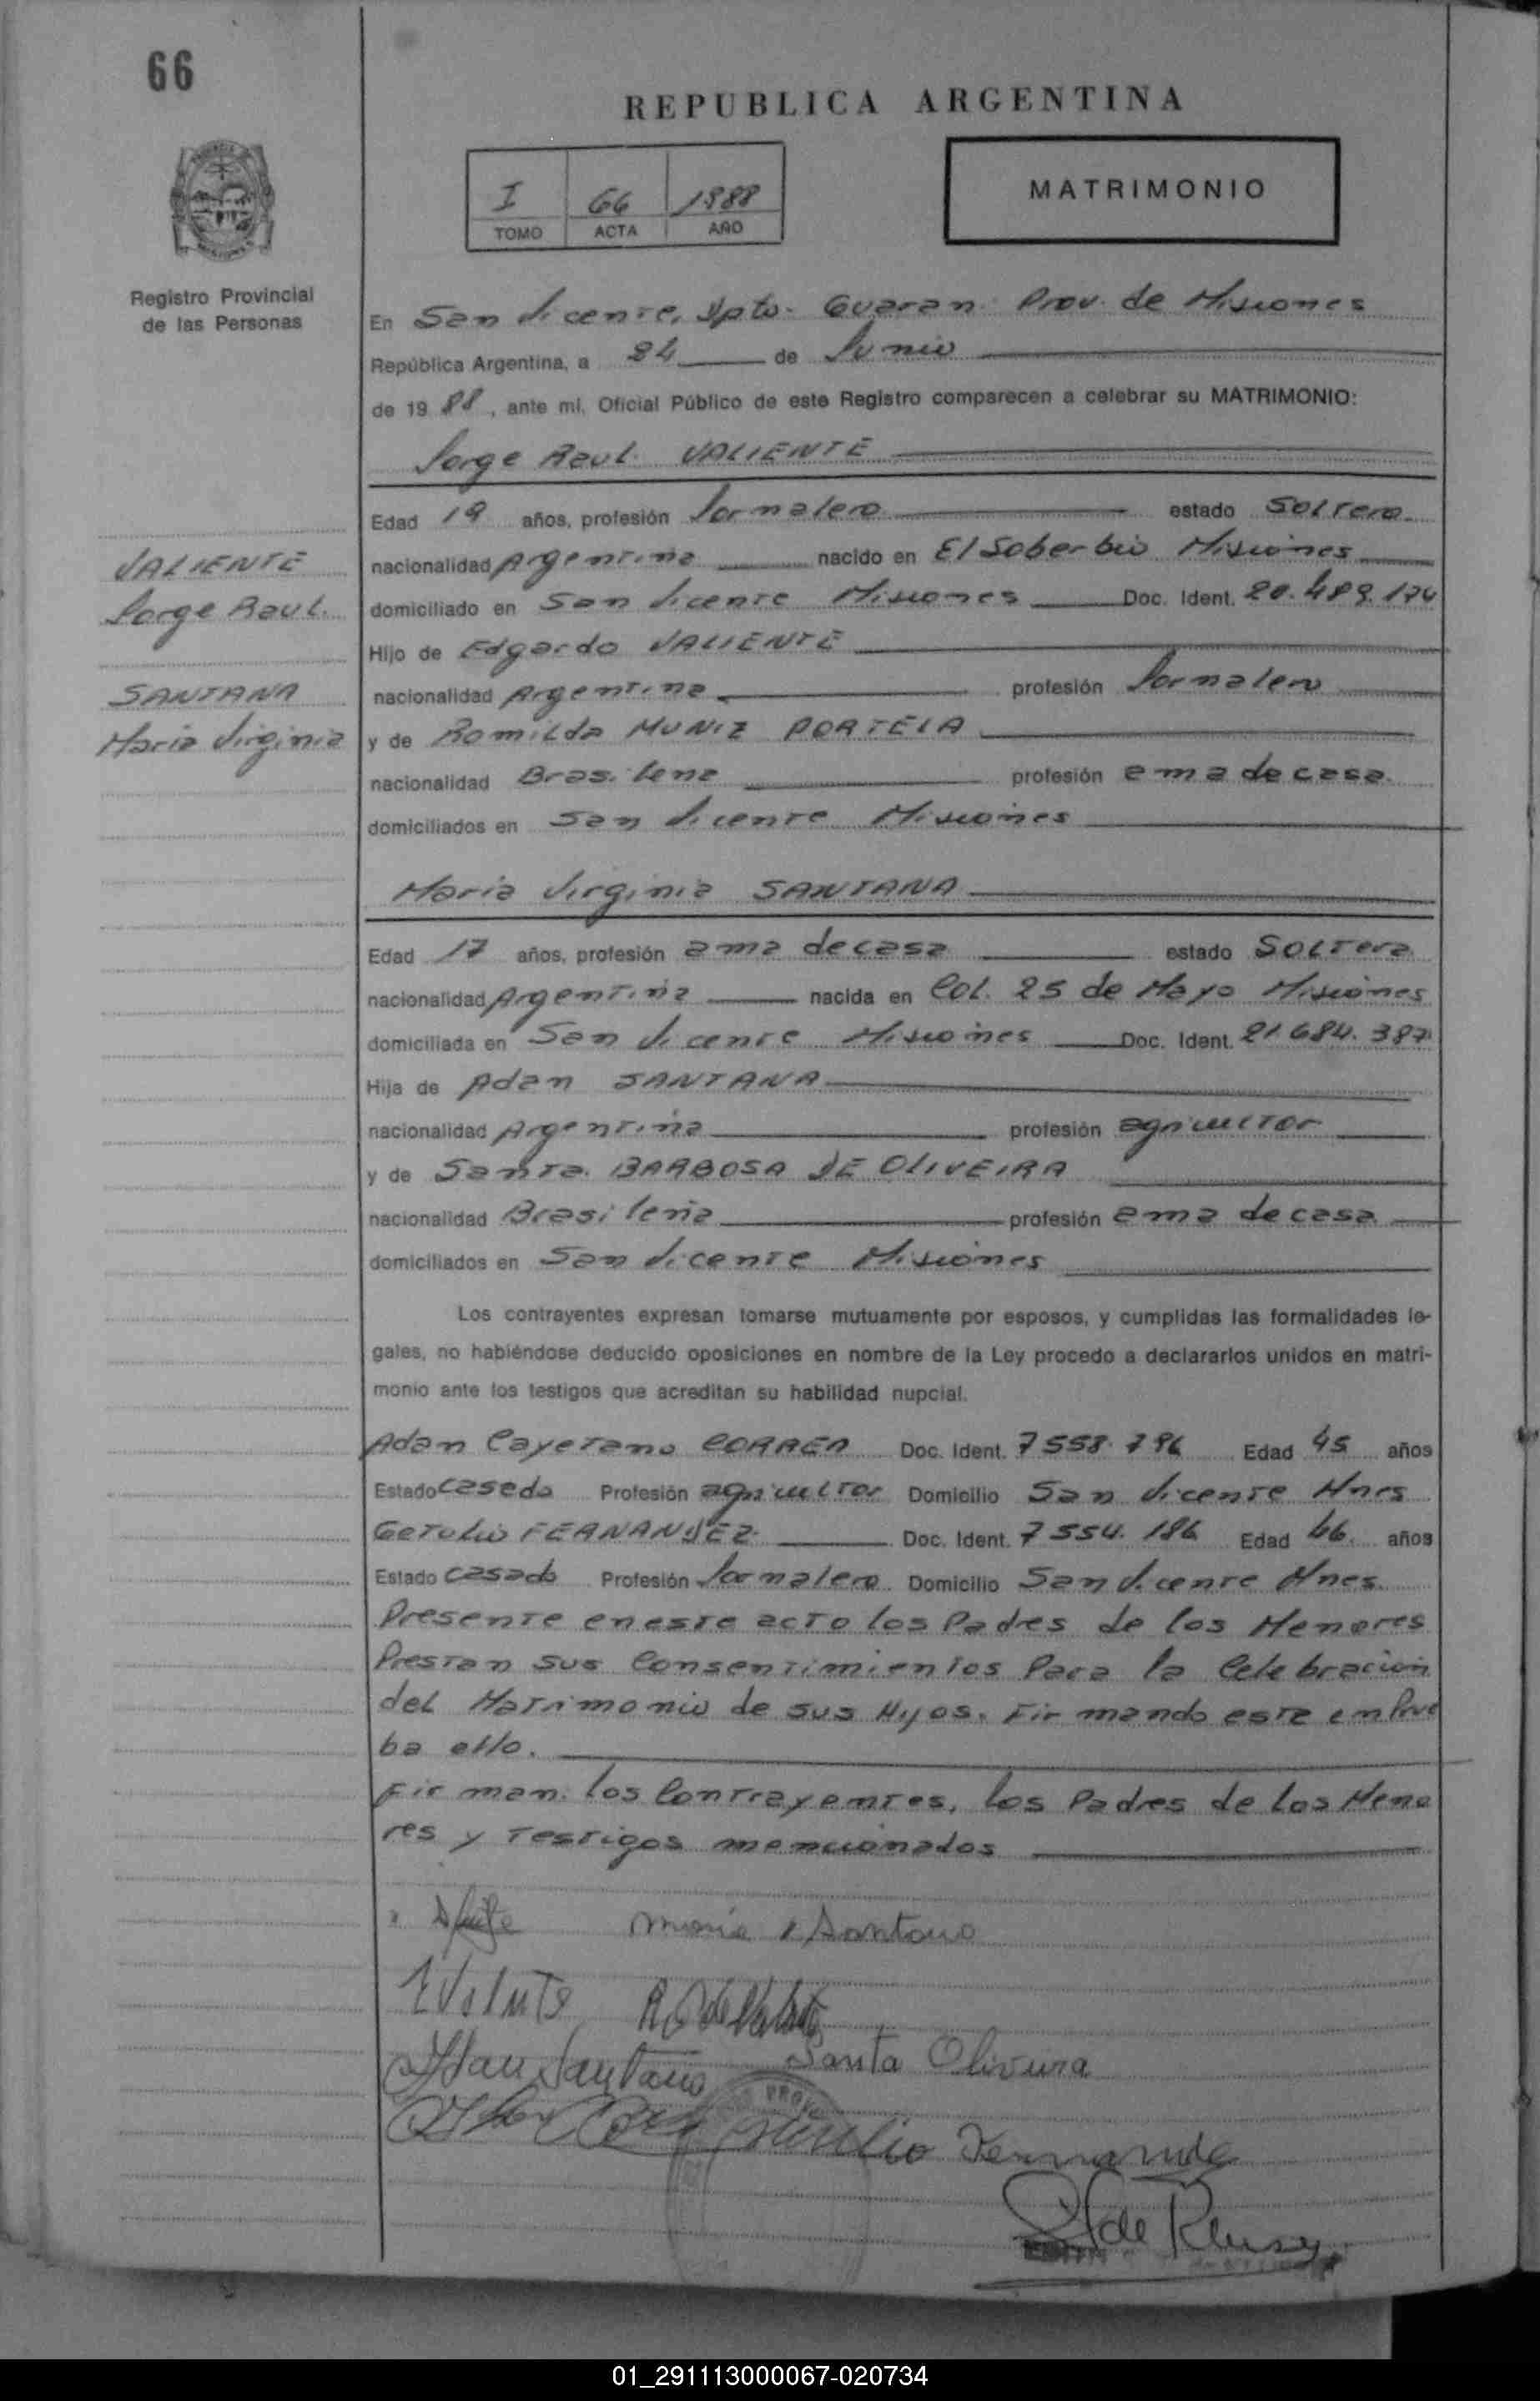 66
REPUBLICA ARGENTINA
I 66 1988
TOMO ACTA AÑO
MATRIMONIO
Registro Provincial
de las Personas
En San Vicente, Dpto. Guarani Prov. de Misiones
República Argentina, a 24 de Junio
de 1988, ante mí, Oficial Público de este Registro comparecen a celebrar su MATRIMONIO:
Jorge Raul VALIENTE
Edad 19 años, profesión Jornalero estado Soltero
VALIENTE
Jorge Raul
SANTANA
Maria Virginia
nacionalidad Argentina nacido en El Soberbio Misiones
domiciliado en San Vicente Misiones Doc. Ident. 20.489.174
Hijo de Edgardo VALIENTE
nacionalidad Argentina profesión Jornalero
y de Romilda MUNIZ PORTELA
nacionalidad Brasilena profesión ama de casa
domiciliados en San Vicente Misiones
Maria Virginia SANTANA
Edad 17 años, profesión ama de casa estado Soltera
nacionalidad Argentina nacida en Col. 25 de Mayo Misiones
domiciliada en San Vicente Misiones Doc. Ident. 21.684.387
Hija de Adan SANTANA
nacionalidad Argentina profesión agricultor
y de Santa BARBOSA DE OLIVEIRA
nacionalidad Brasileña profesión ama de casa
domiciliados en San Vicente Misiones
Los contrayentes expresan tomarse mutuamente por esposos, y cumplidas las formalidades le-
gales, no habiéndose deducido oposiciones en nombre de la Ley procedo a declararlos unidos en matri-
monio ante los testigos que acreditan su habilidad nupcial.
Adan Cayetano CORREA Doc. Ident. 7558.796 Edad 45 años
Estado casado Profesión agricultor Domicilio San Vicente Mnes
Getulio FERNANDEZ Doc. Ident. 7554.186 Edad 46 años
Estado casado Profesión Jornalero Domicilio San Vicente Mnes.
Presente en este acto los Padres de los Menores
Prestan sus Consentimientos Para la Celebracion
del Matrimonio de sus Hijos. Firmando este en Prue
ba ello.
Firman: los Contrayentes, los Padres de los Meno
res y Testigos mencionados
Maria V Santana
Adan Santana Santa Oliveira
Getulio Fernande
01_291113000067-020734